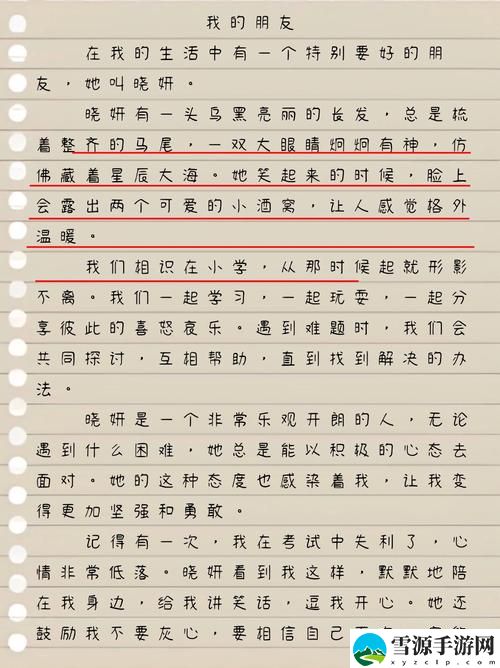 我的朋友
在我的生活中有一个特别要好的朋
友，她叫晓妍。
晓妍有一头乌黑亮丽的长发，总是梳
着整齐的马尾，一双大眼睛炯炯有神，仿
佛藏着星辰大海。她笑起来的时候，脸上
会露出两个可爱的小酒窝，让人感觉格外
温暖。
我们相识在小学，从那时候起就形影
不离。我们一起学习，一起玩耍，一起分
享彼此的喜怒哀乐。遇到难题时，我们会
共同探讨，互相帮助，直到找到解决的办
法。
晓妍是一个非常乐观开朗的人，无论
遇到什么困难，她总是能以积极的心态去
面对。她的这种态度也感染着我，让我变
得更加坚强和勇敢。
记得有一次，我在考试中失利了，心
情非常低落。晓妍看到我这样，默默地陪
在我身边，给我讲笑话，逗我开心。她还
鼓励我不要灰心，要相信自己
雪源手游网
xyzcjz.com